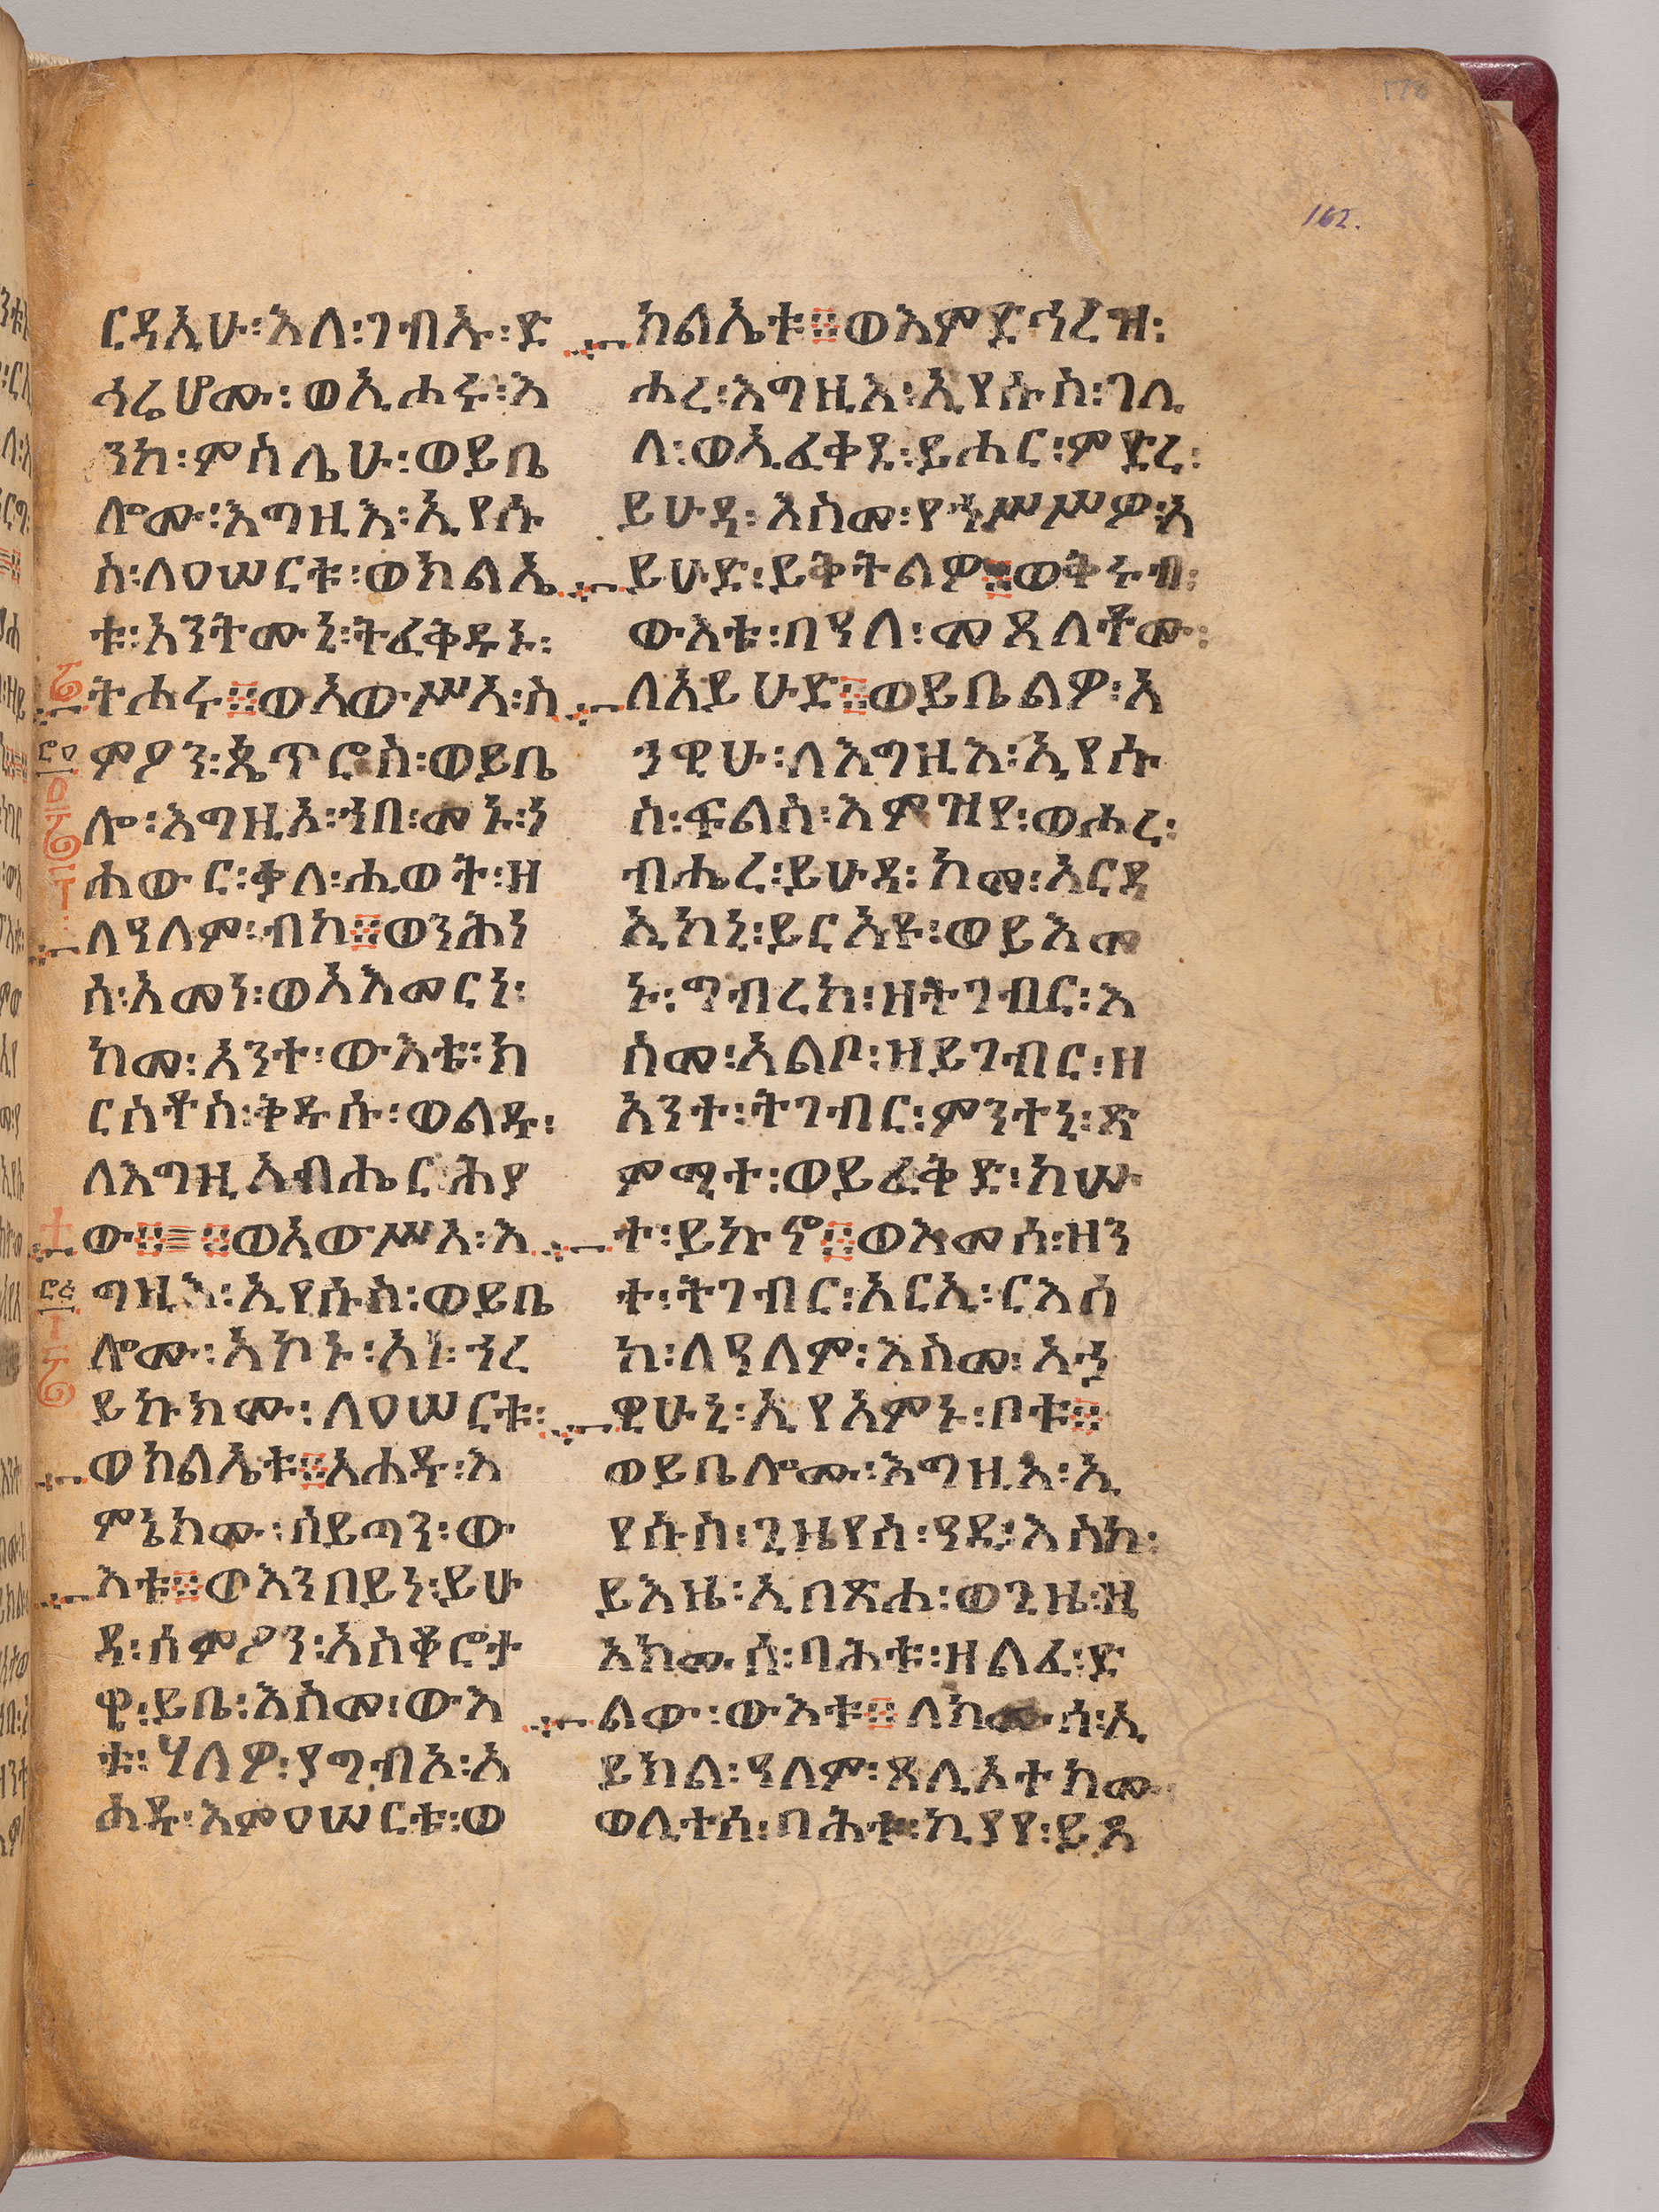 162.
ርዳኢሁ፡እለ፡ገብኡ፡ድ
ኅሬሆሙ፡ወኢሐሩ፡እ
ንከ፡ምስሌሁ፡ወይቤ
ሎሙ፡እግዚእ፡ኢየሱ
ስ፡ለዐሠርቱ፡ወክልኤ
ቱ፡አንትሙኒ፡ትፈቅዱኑ፡
ትሐሩ፨ወአውሥአ፡ስ
ምዖን፡ጴጥሮስ፡ወይቤ
ሎ፡እግዚኦ፡ኀበ፡መኑ፡ነ
ሐውር፡ቃለ፡ሒወት፡ዘ
ለዓለም፡ብከ፨ወንሕነ
ሰ፡አመነ፡ወአእመርነ፡
ከመ፡አንተ፡ውእቱ፡ክ
ርስቶስ፡ቅዱሱ፡ወልዱ፡
ለእግዚአብሔር፡ሕያ
ው፨፨ወአውሥአ፡እ
ግዚእ፡ኢየሱስ፡ወይቤ
ሎሙ፡አኮኑ፡አነ፡ኀረ
ይኩክሙ፡ለዐሠርቱ፡
ወክልኤቱ፨አሐዱ፡እ
ምኔክሙ፡ሰይጣን፡ው
እቱ፨ወእንበይነ፡ይሁ
ዳ፡ሰምዖን፡አስቆሮታ
ዊ፡ይቤ፡እስመ፡ውእ
ቱ፡ሃለዎ፡ያግብኦ፡አ
ሐዱ፡እምዐሠርቱ፡ወ
ክልኤቱ፨ወእምድኅረዝ፡
ሐረ፡እግዚእ፡ኢየሱስ፡ገሊ
ላ፡ወኢፈቀደ፡ይሐር፡ምድረ፡
ይሁዳ፡እስመ፡የኀሥሥዎ፡አ
ይሁድ፡ይቅትልዎ፨ወቅሩብ፡
ውእቱ፡በዓለ፡መጸለቶሙ፡
ለአይሁድ፨ወይቤልዎ፡አ
ኀዊሁ፡ለእግዚእ፡ኢየሱ
ስ፡ፍልስ፡እምዝየ፡ወሑረ፡
ብሔረ፡ይሁዳ፡ከመ፡አርዳ
ኢከኒ፡ይርአዩ፡ወይእመ
ኑ፡ግብረከ፡ዘትገብር፡እ
ስመ፡አልቦ፡ዘይገብር፡ዘ
አንተ፡ትገብር፡ምንተኒ፡ጽ
ምሚተ፡ወይፈቅድ፡ከሡ
ተ፡ይኩኖ፨ወእመሰ፡ዘን
ተ፡ትገብር፡አርኢ፡ርእሰ
ከ፡ለዓለም፡እስመ፡አኀ
ዊሁኒ፡ኢየአምኑ፡ቦቱ፨
ወይቤሎሙ፡እግዚእ፡ኢ
የሱስ፡ጊዜየሰ፡ዓዲ፡እስከ፡
ይእዜ፡ኢበጽሐ፡ወጊዜ፡ዚ
አክሙሰ፡ባሕቱ፡ዘልፈ፡ድ
ልው፡ውእቱ፨ለክሙሰ፡ኢ
ይክል፡ዓለም፡ጸሊአተክሙ
ወሊተሰ፡ባሕቱ፡ኪያየ፡ይጸ